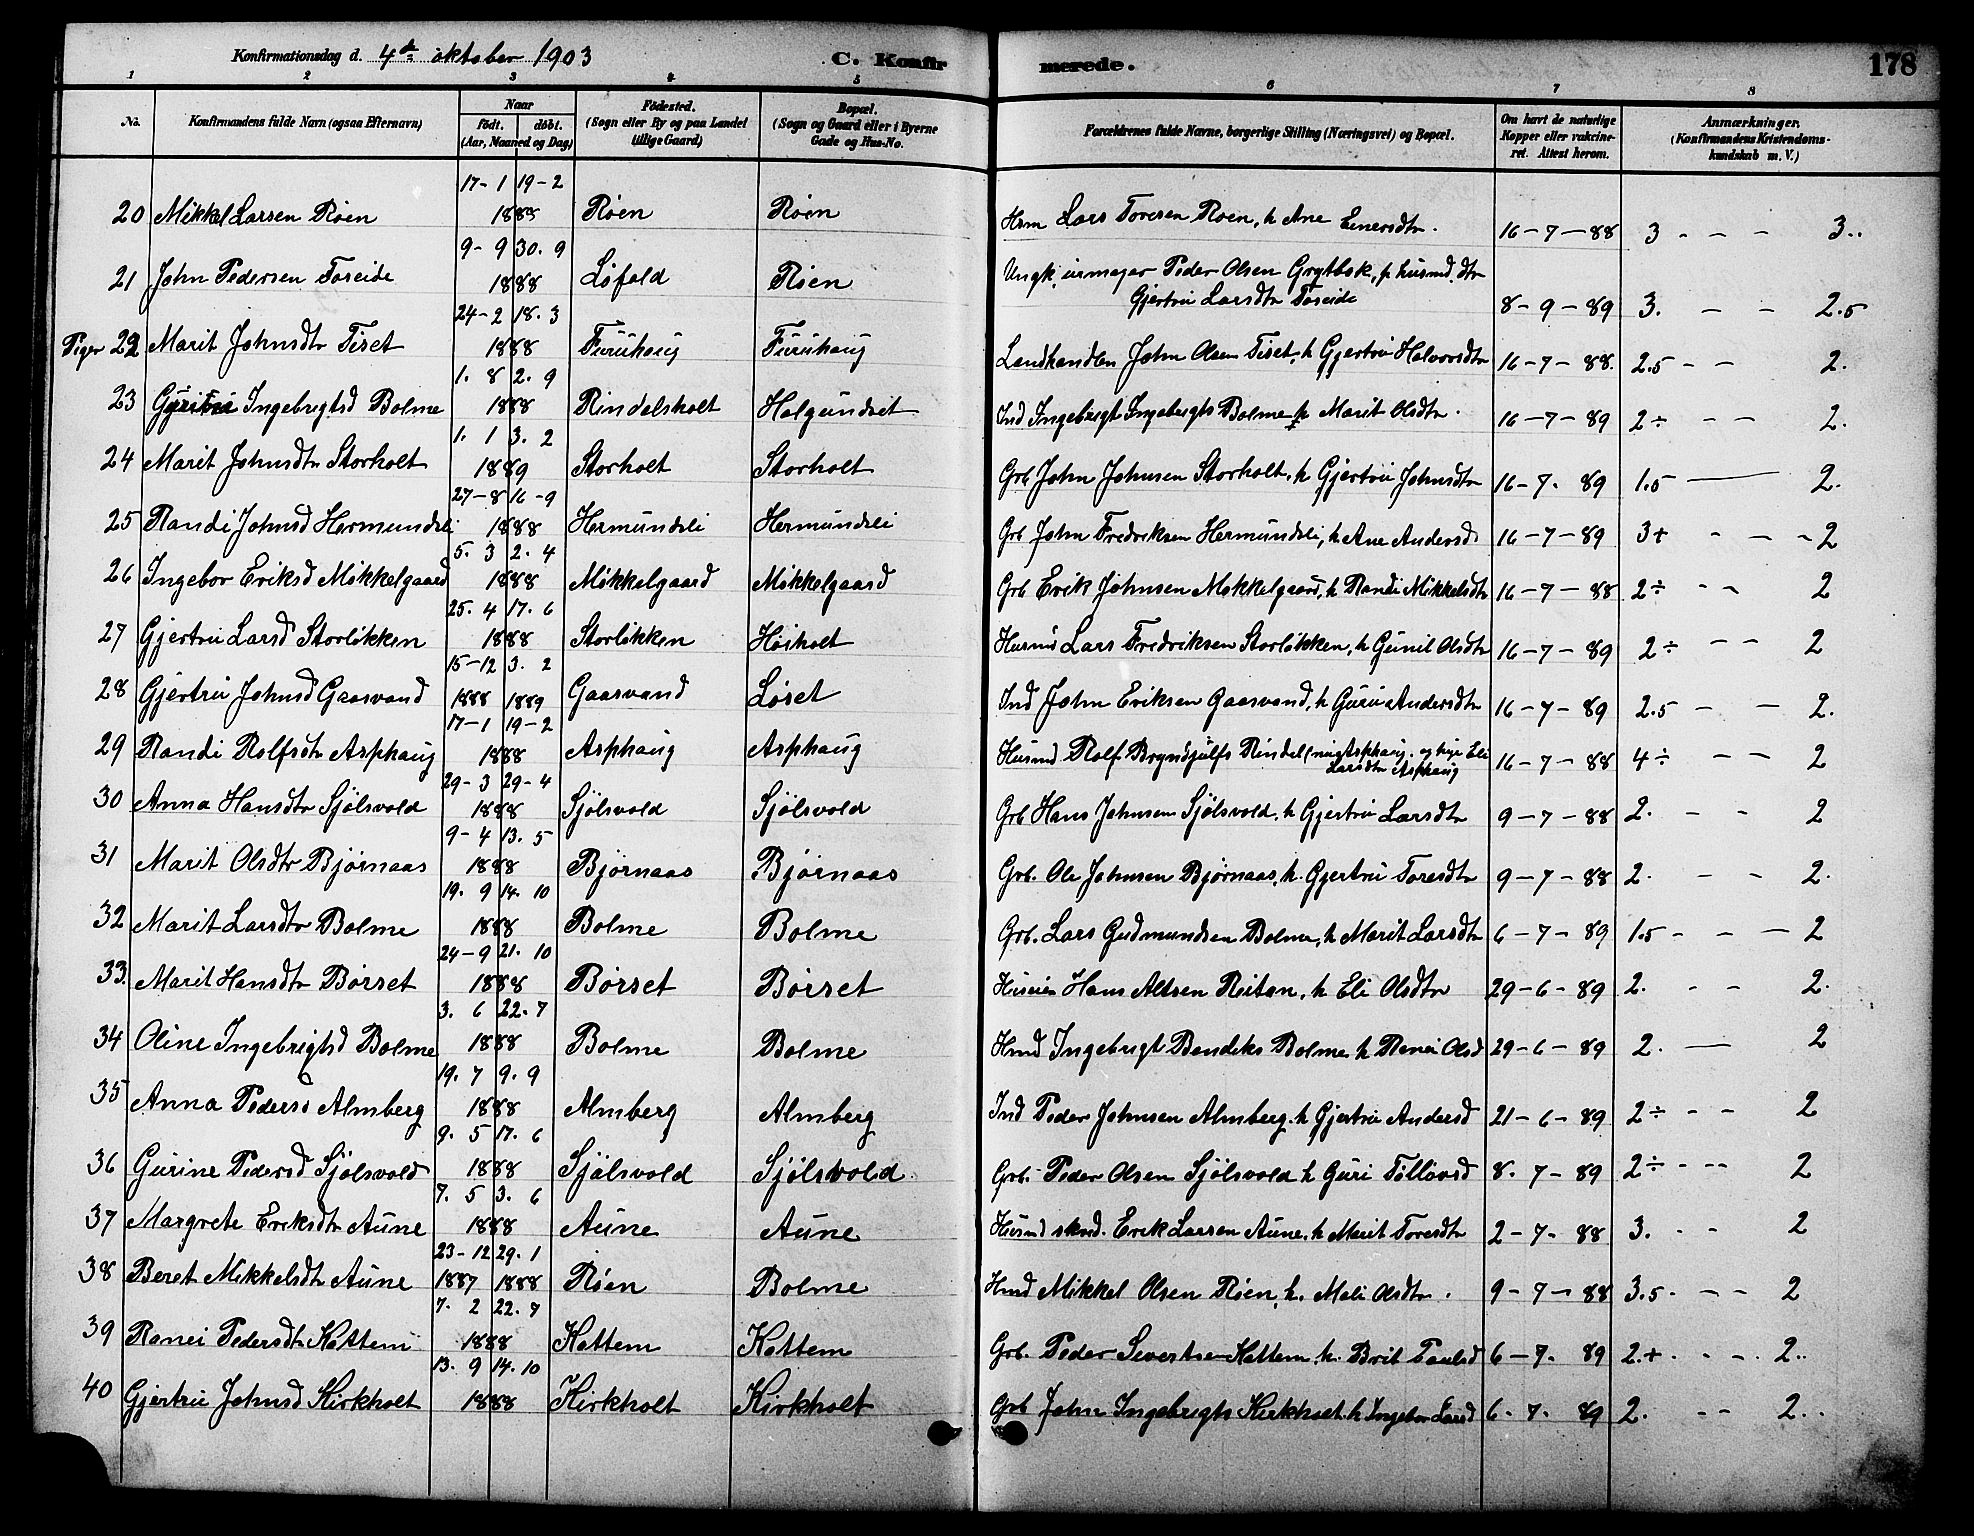 Konfirmationsdag d. 4de oktober 1903
C. Konfir
merede.
178
1 2 3 4 5 6 7 8
No.
Konfirmandens fulde Navn (ogsaa Efternavn)
Naar
født. døbt.
(Aar, Maaned og Dag)
Fødested.
(Sogn eller By og paa Landet
tillige Gaard)
Bopæl.
(Sogn og Gaard eller i Byerne
Gade og Hus-No.
Forældrenes fulde Navne, borgerlige Stilling (Næringsvei) og Bopæl.
Om havt de naturlige
Kopper eller vakcine-
ret. Attest herom.
Anmærkninger,
(Konfirmandens Kristendoms-
kundskab m. V.)
17-1 19-2
20 Mikkel Larsen Røen 1888 Røen Røen Hrm Lars Toresen Røen, h Ane Einersdtr. 16-7-88 3 - - - 3..
9-9 30.9
21 John Pedersen Foseide 1888 Løfald Røen Ungk, urmager Peder Olsen Grytbak, p husmd. dtr
Gjertru Larsdtr Foseide 8-9-89 3. - - 2.5
24-2 18.3
Piger 22 Marit Johnsdtr Tiset 1888 Furuhaug Furuhaug Landhandler John Olsen Tiset, h Gjertru Halvorsdtr 16-7-88. 2.5 - - 2.
1.8 2.9
23 Ingebrigtsd Bolme 1888 Rindelsholt Halgundset Ind Ingebrigt Ingebrigts Bolme, h Marit Olsdtr. 16-7-89 2÷ - - 2.
1.1 3.2
24 Marit Johnsdtr Storholt 1889 Storholt Storholt Grb John Johnsen Storholt, h Gjertru Johnsdtr 16-7-89 1.5 — 2.
27-8 16-9
25 Randi Johnsd Hermundsli 1888 Hermundsli Hermundsli Grb John Fredriksen Hermundsli, h Ane Andersd 16-7-89 3+ - - - 2
5.3 2.4
26 Ingebor Eriksd Mikkelgaard 1888 Mikkelgaard Mikkelgaard Grb Erik Johnsen Mikkelgaard, h Randi Mikkelsdtr 16-7-88 2÷ - - 2
25.4 17.6
27 Gjertru Larsd Storløkken 1888 Storløkken Høiholt Husmd Lars Fredriksen Storløkken, h Gunil Olsdtr 16-7-89 2÷ - - 2
15-12 3.2
28 Gjertru Johnsd Gaasvand 1888 1889 Gaasvand Løset Ind John Eriksen Gaasvand, h Guru Andersdtr 16-7-89 2.5 - - 2.
17-1 19-2
29 Randi Rolfsdtr Asphaug 1888 Asphaug Asphaug Husmd Rolf Bryndjulfs Rindal (nu Asphaug, og pige Eli
Larsdtr Asphaug 16-7-88 4÷ - - 2
29-3 29-4
30 Anna Hansdtr Sjølsvold 1888 Sjølsvold Sjølsvold Grb Hans Johnsen Sjølsvold, h Gjertru Larsdtr 9-7-88 2. - - 2
9-4 13.5
31 Marit Olsdtr Bjørnaas 1888 Bjørnaas Bjørnaas Grb. Ole Johnsen Bjørnaas, h. Gjertru Toresdtr 9-7-88 2. - - 2.
19.9 14.10
32 Marit Larsdtr Bolme 1888 Bolme Bolme Grb. Lars Gudmundsen Bolme, h Marit Larsdtr 6-7-89 1.5 - - - 2
24-9 21.10
33. Marit Hansdtr Børset 1888 Børset Børset Hans Altsen Reitan, h Eli Olsdtr 29-6-89 2. - - 2.
3.6 22.7
34 Oline Ingebrigtsd Bolme 1888 Bolme Bolme Hmd Ingebrigt Bendiks Bolme h Ranei Olsd 29-6-89 2. — 2
19.7 9.9
35 Anna Pedersd Almberg 1888 Almberg Almberg Ind Peder Johnsen Almberg. h Gjertru Andersd 21-6-89 2÷ - - 2
9.5 17.6
36 Gurine Pedersd Sjølsvold 1888 Sjølsvold Sjølsvold. Grb. Peder Olsen Sjølsvold h Guri Tøllovsd 8.7-89 2÷ - -- 2
7.5 3.6
37 Margrete Eriksdtr Aune 1888 Aune Aune Husmd skrd. Erik Larsen Aune, h Marit Toresdtr 2-7-88 3. - - 2
23-12 29.1
38 Beret Mikkelsdtr Aune 1887 1888 Røen Bolme Hmd Mikkel Olsen Røen, h. Mali Olsdtr. 9-7-88 3.5. - - 2
7.2 22.7
39 Ranei Pedersdtr Kattem 1888 Kattem Kattem Grb. Peder Sivertsen Kattem, h. Brit Paulsd 6-7.89 2.+ . - - . 2..
13.9 14.10
40 Gjertru Johnsd Kirkholt 1888 Kirkholt Kirkholt Grb John Ingebrigts Kirkholt. h Ingebor Larsd 6-7-89 2. - - 2..